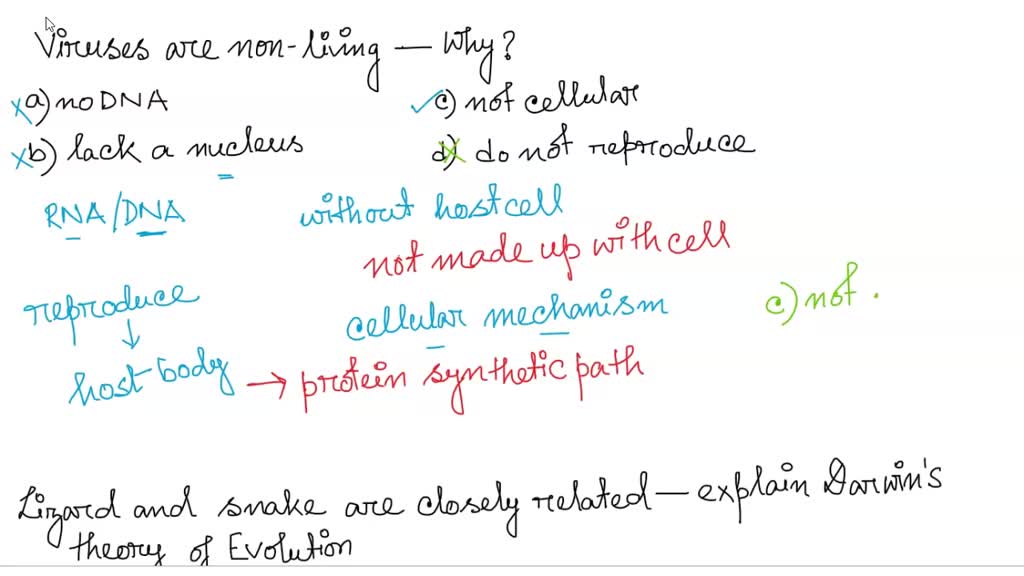 Viruses are non-living — Why?
a) no DNA
c) not cellular
b) lack a nucleus
d) do not reproduce
RNA/DNA
without host cell
not made up with cell
reproduce
cellular mechanism
c) not .
host-body → protein synthetic path
Lizard and snake are closely related — explain Darwin's
theory of Evolution